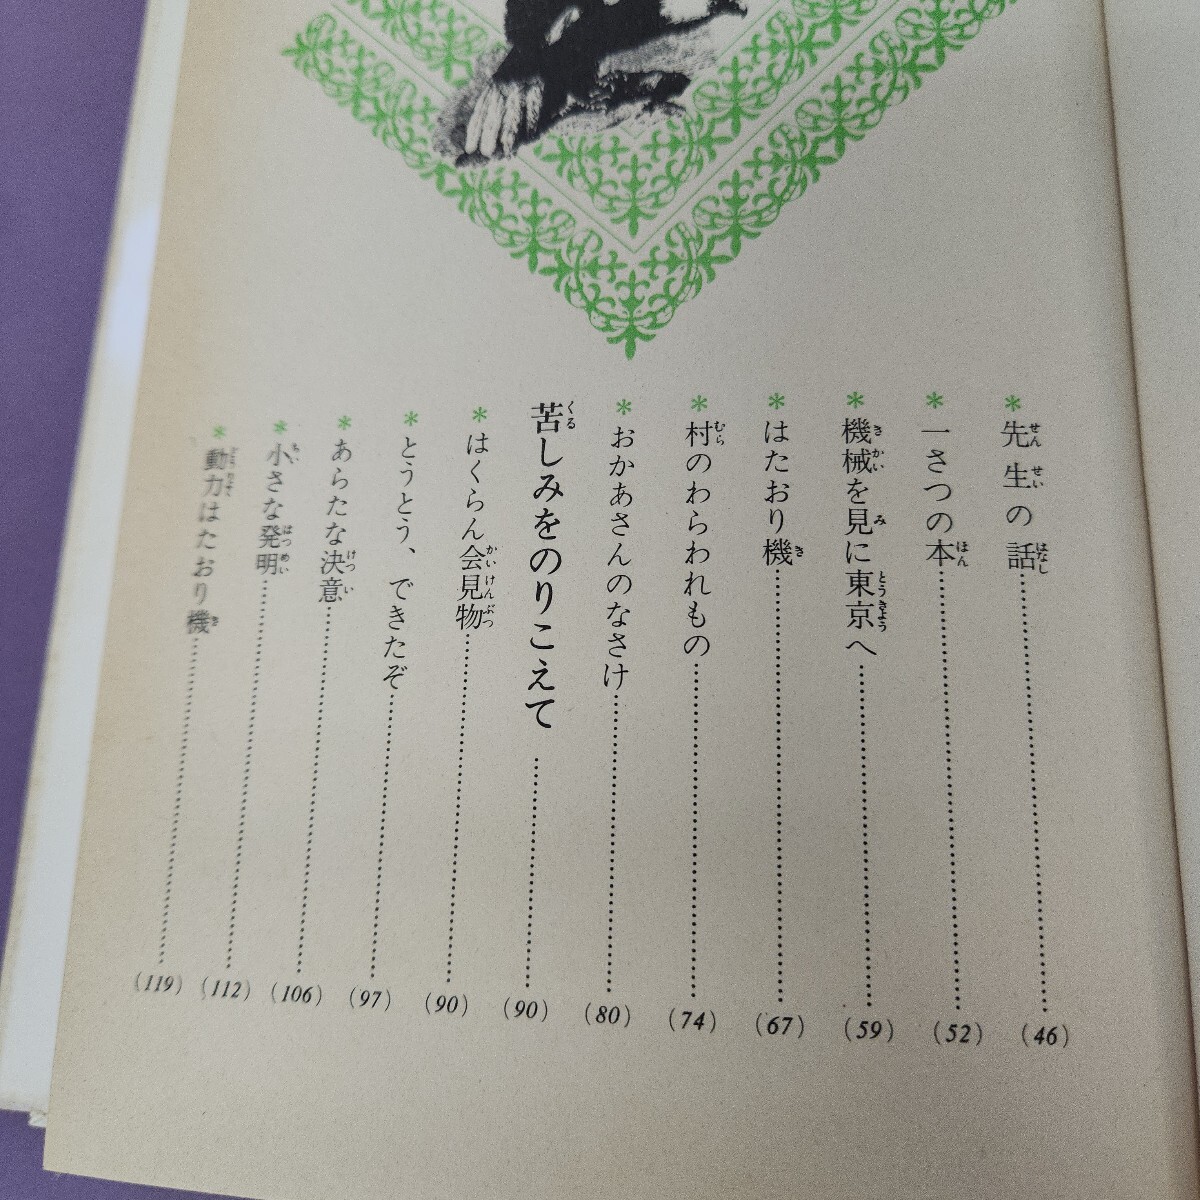 ＊先生の話……(46)
＊一さつの本……(52)
＊機械を見に東京へ……(59)
＊はたおり機……(67)
＊村のわらわれもの……(74)
＊おかあさんのなさけ……(80)
苦しみをのりこえて……(90)
＊はくらん会見物……(90)
＊とうとう、できたぞ……(97)
＊あらたな決意……(106)
＊小さな発明……(112)
＊動力はたおり機……(119)